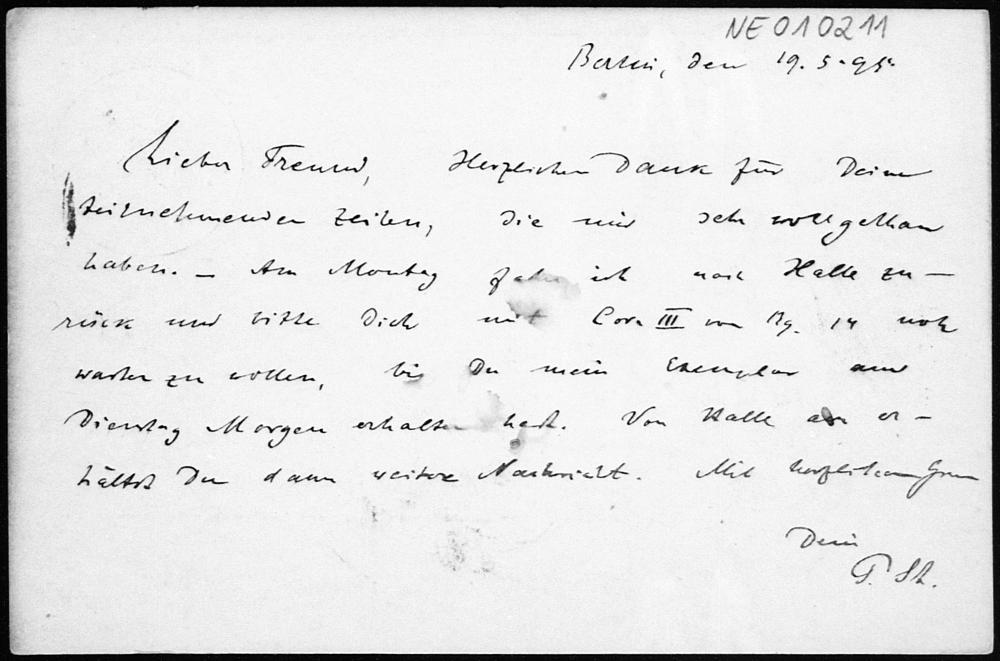 NE010211
Berlin, den 19.5.95.
Lieber Freund, Herzlichen Dank für Deine
teilnehmenden Zeilen, die mir sehr wollgethan
haben. – Am Montag fahre ich nach Halle zu-
rück und bitte Dich mit Corr III von Bg. 14 noch
warten zu wollen, bis Du mein Exemplar am
Dienstag Morgen erhalten hast. Von Halle aus er-
hältst Du dann weitere Nachricht. Mit herzlichem Gruss
Dein